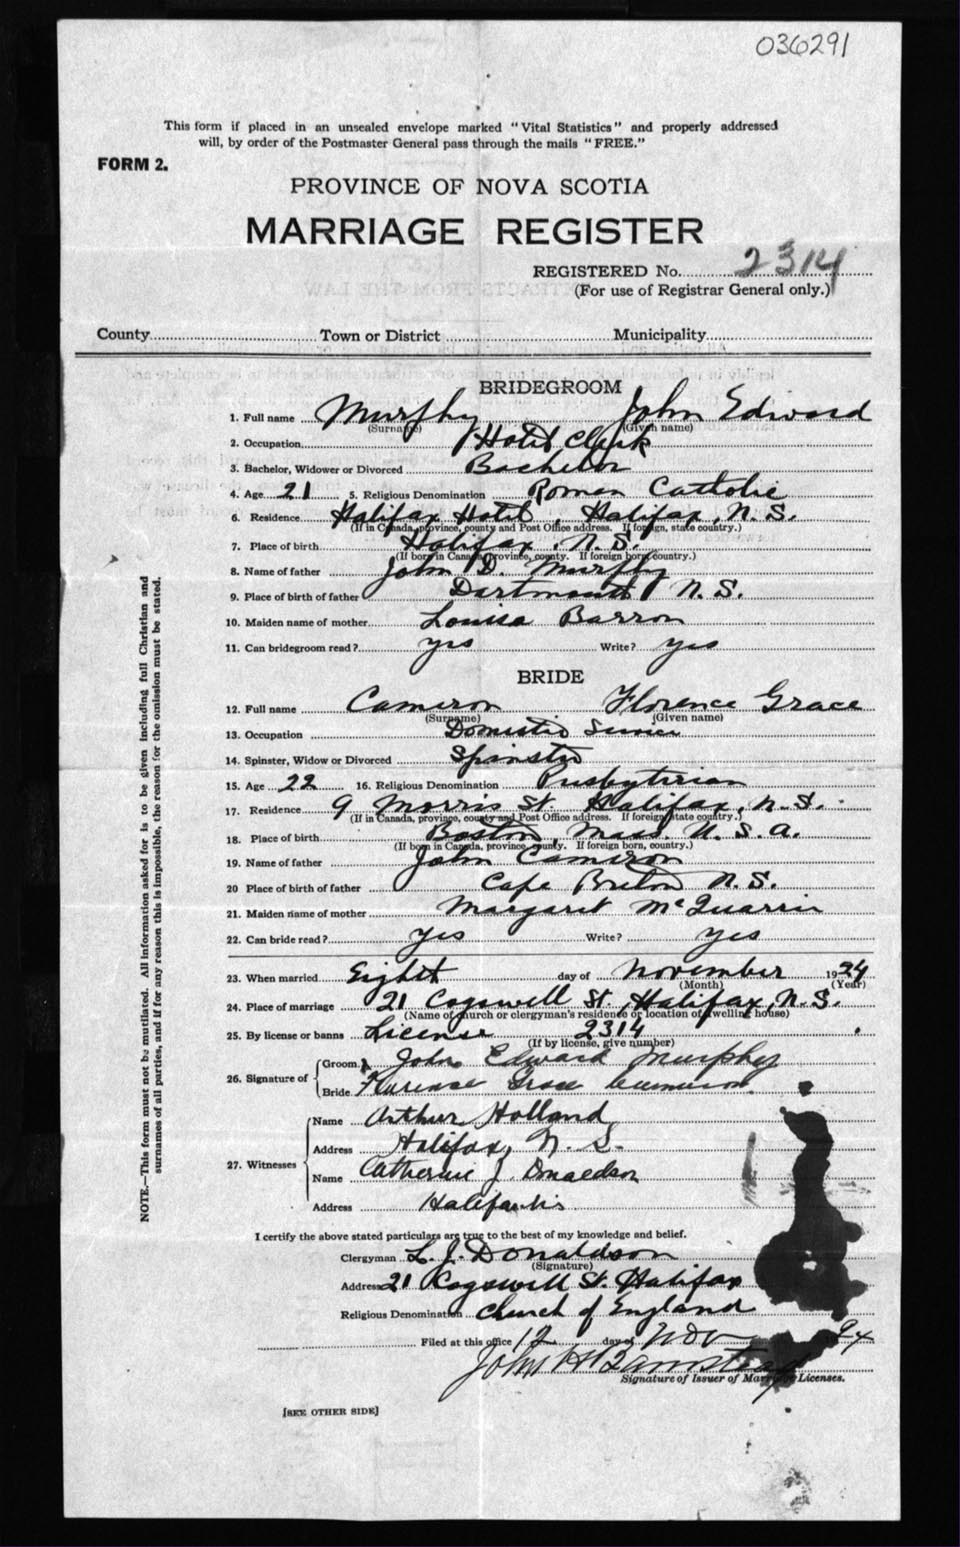 036291
This form if placed in an unsealed envelope marked "Vital Statistics" and properly addressed
will, by order of the Postmaster General pass through the mails "FREE."
FORM 2.
PROVINCE OF NOVA SCOTIA
MARRIAGE REGISTER
REGISTERED No. 2314
(For use of Registrar General only.)
County Town or District Municipality
BRIDEGROOM
1. Full name Murphy John Edward
(Surname) (Given name)
2. Occupation Hotel Clerk
3. Bachelor, Widower or Divorced Bachelor
4. Age 21 5. Religious Denomination Roman Catholic
6. Residence Halifax Hotel, Halifax, N.S.
(If in Canada, province, county and Post Office address. If foreign, state country.)
7. Place of birth Halifax, N.S.
(If born in Canada, province, county. If foreign born, country.)
8. Name of father John D. Murphy
9. Place of birth of father Dartmouth N.S.
10. Maiden name of mother Louisa Barron
11. Can bridegroom read? yes Write? yes
BRIDE
12. Full name Cameron Florence Grace
(Surname) (Given name)
13. Occupation Domestic
14. Spinster, Widow or Divorced Spinster
15. Age 22 16. Religious Denomination Presbyterian
17. Residence 9 Morris St. Halifax, N.S.
(If in Canada, province, county and Post Office address. If foreign state country.)
18. Place of birth Boston, Mass. U.S.A.
(If born in Canada, province, county. If foreign born, country.)
19. Name of father John Cameron
20 Place of birth of father Cape Breton N.S.
21. Maiden name of mother Margaret McQuarrie
22. Can bride read? yes Write? yes
23. When married Eighth day of November 1924
(Month) (Year)
24. Place of marriage 21 Cogswell St. Halifax, N.S.
(Name of church or clergyman's residence or location of dwelling house)
25. By license or banns License 2314
(If by license, give number)
26. Signature of Groom John Edward Murphy
Bride Florence Grace Cameron
27. Witnesses
Name Arthur Holland
Address Halifax, N.S.
Name Catherine J. Donaldson
Address Halifax
I certify the above stated particulars are true to the best of my knowledge and belief.
Clergyman L. J. Donaldson
(Signature)
Address 21 Cogswell St. Halifax
Religious Denomination Church of England
Filed at this office 12 day of Nov 24
Signature of Issuer of Marriage Licenses.
[SEE OTHER SIDE]
NOTE.—This form must not be mutilated. All information asked for is to be given including full Christian and
surnames of all parties, and if for any reason this is impossible, the reason for the omission must be stated.